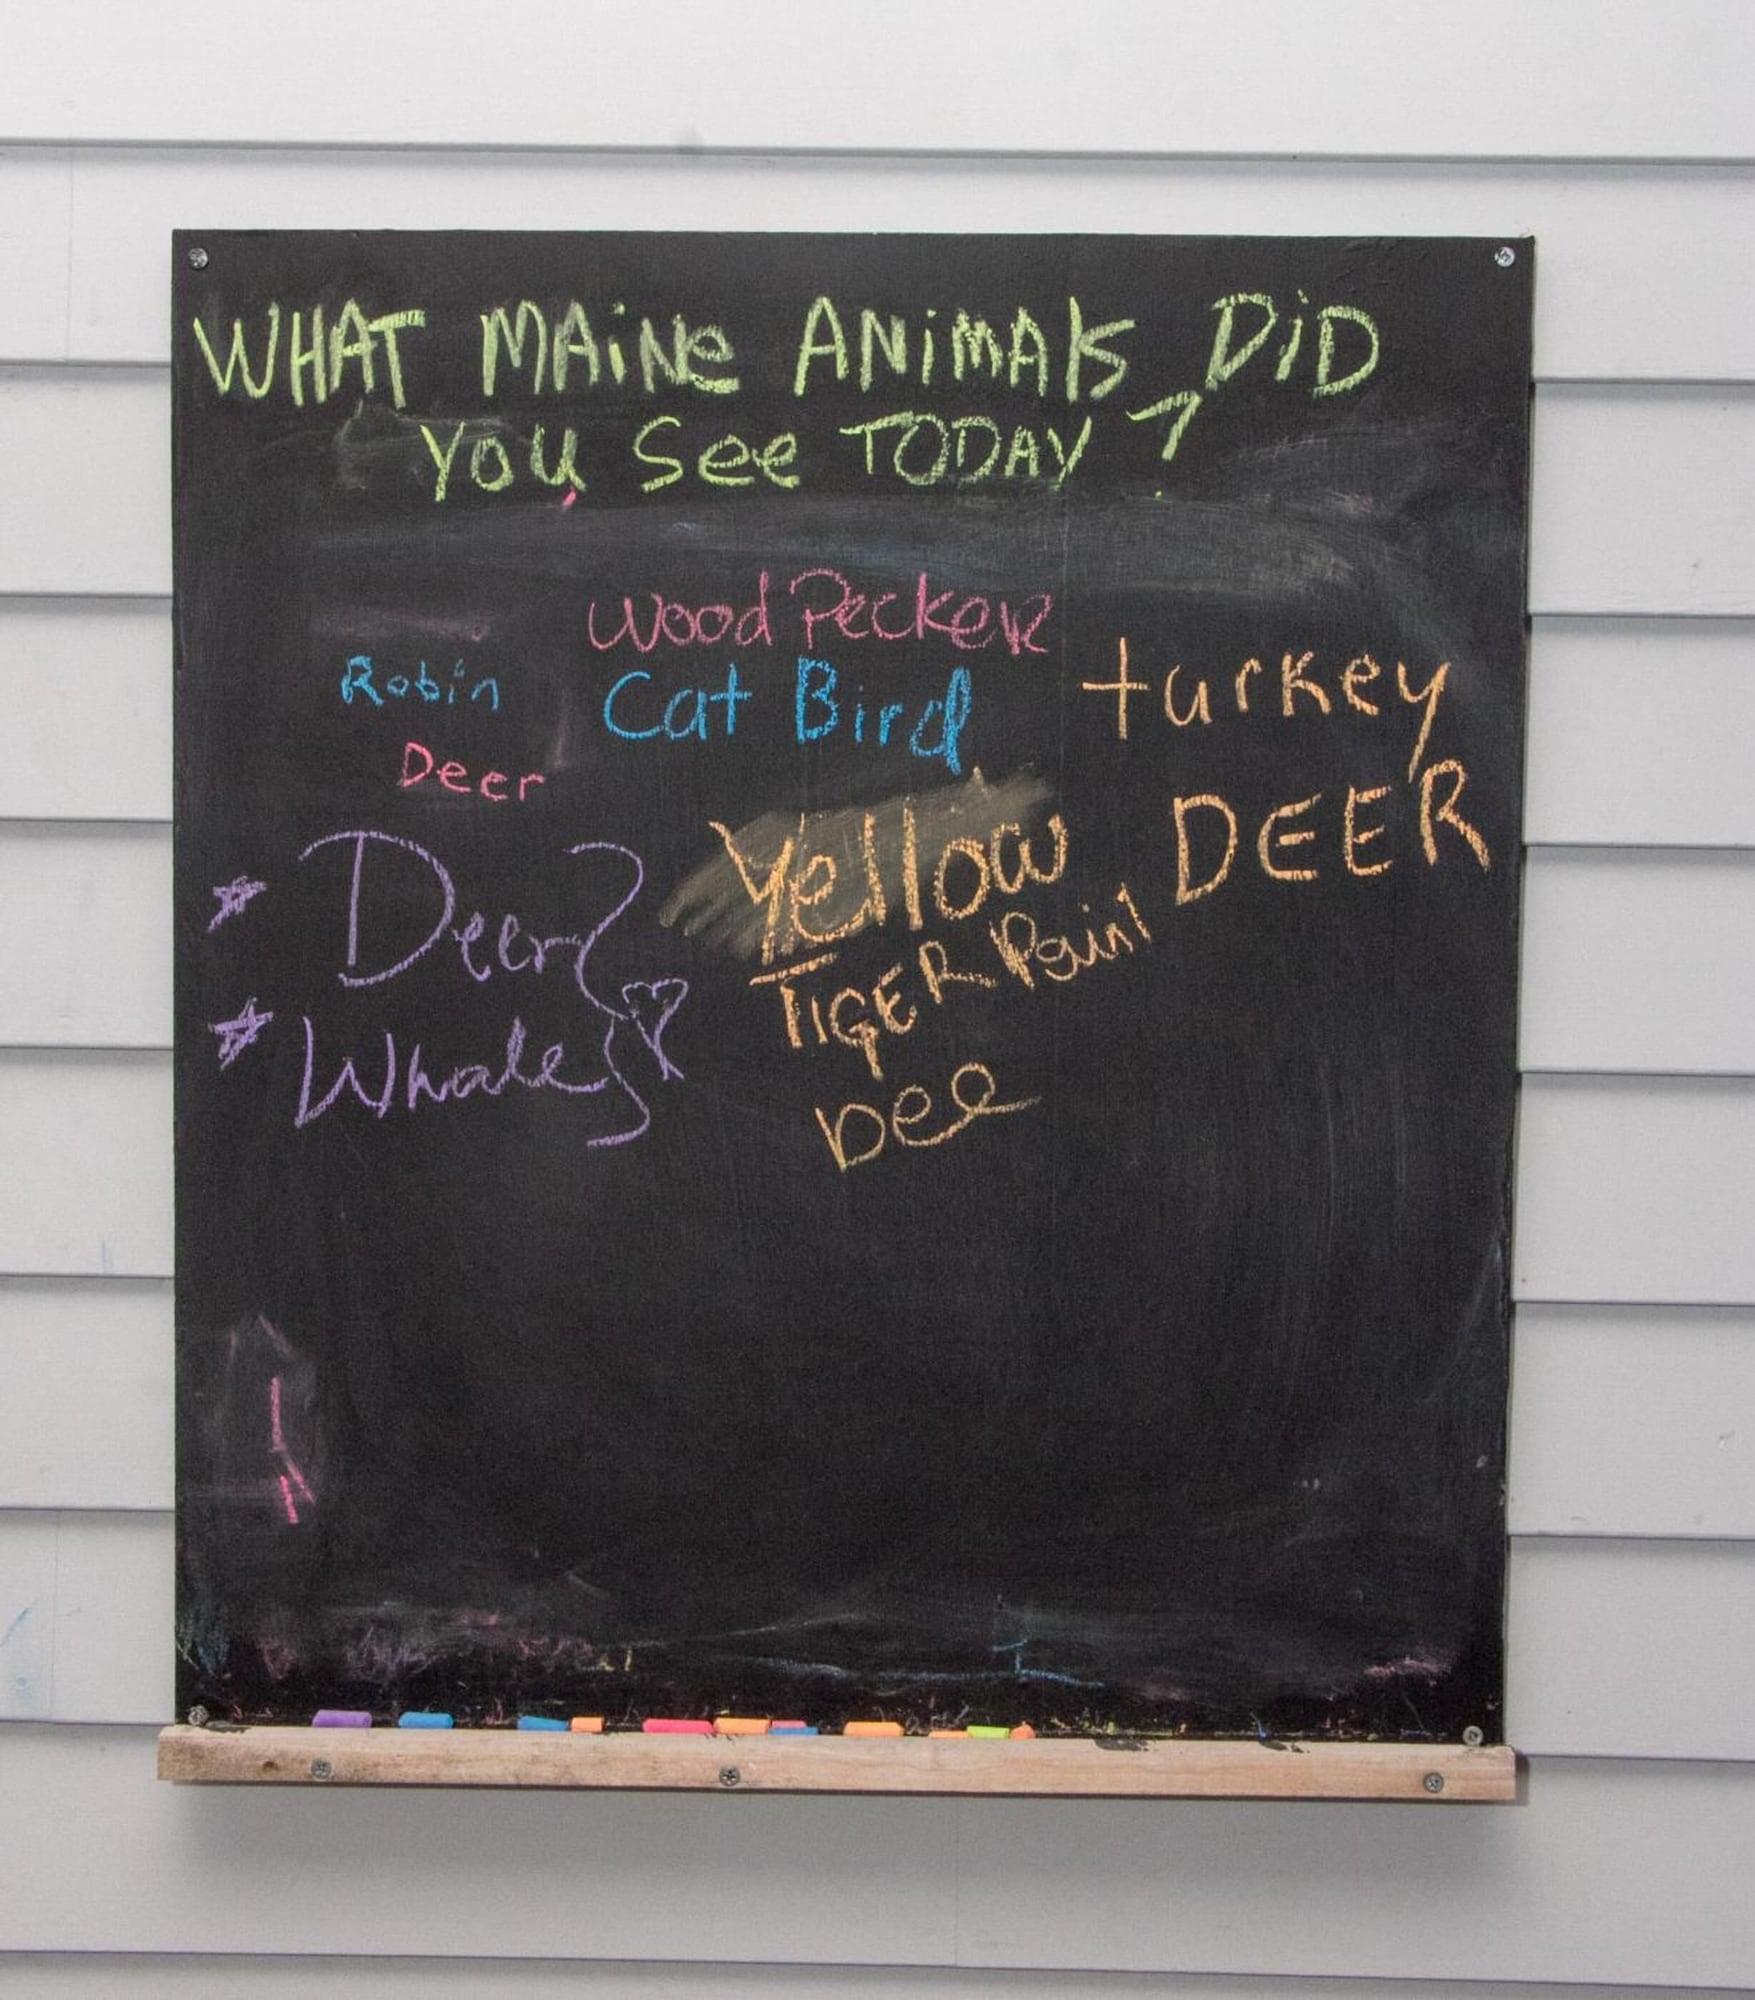 WHAT MAiNe ANiMAlS DiD
YOU See TODAY ?
Wood Pecker
Robin
Cat Bird
turkey
Deer
DEER
Yellow
TIGER
Deer
Whale